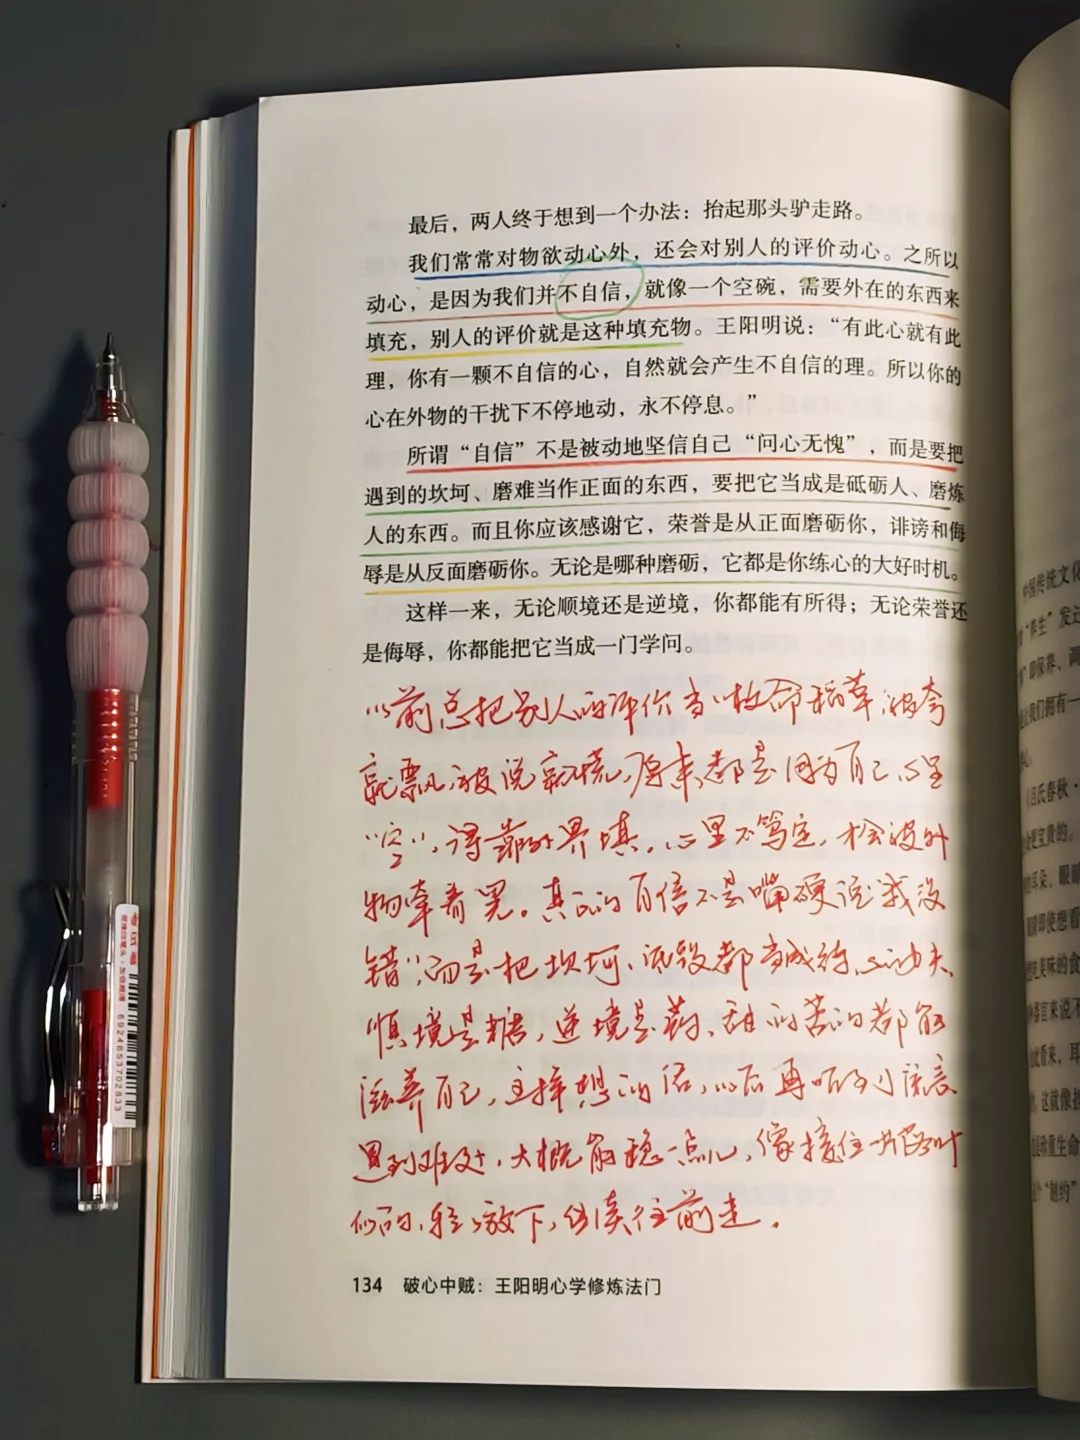 最后，两人终于想到一个办法：抬起那头驴走路。
我们常常对物欲动心外，还会对别人的评价动心。之所以
动心，是因为我们并不自信，就像一个空碗，需要外在的东西来
填充，别人的评价就是这种填充物。王阳明说：“有此心就有此
理，你有一颗不自信的心，自然就会产生不自信的理。所以你的
心在外物的干扰下不停地动，永不停息。”
所谓“自信”不是被动地坚信自己“问心无愧”，而是要把
遇到的坎坷、磨难当作正面的东西，要把它当成是砥砺人、磨炼
人的东西。而且你应该感谢它，荣誉是从正面磨砺你，诽谤和侮
辱是从反面磨砺你。无论是哪种磨砺，它都是你练心的大好时机。
这样一来，无论顺境还是逆境，你都能有所得；无论荣誉还
是侮辱，你都能把它当成一门学问。
以前总把别人的评价当救命稻草，被夸
就飘，被说就慌，原来都是因为自己心里
“空”，得靠外界填。心里不笃定，才会被外
物牵着晃。真正的自信不是嘴硬说“我没
错”，而是把坎坷、诋毁都当成练心功夫，
顺境是糖，逆境是药，甜的苦的都能
滋养自己，这样想的话，以后再听到流言
遇到难处，大概能稳一点儿，像接住一片落叶
似的，轻轻放下，继续往前走。
134 破心中贼：王阳明心学修炼法门
6924853702833
中国传统文化
“养生”发
即保养、调
我们拥有一
《吕氏春秋·
宝贵的。
耳朵、眼
即使想看
美味的食
器官来说不
看来，耳
这就像
珍重生命
“制约”